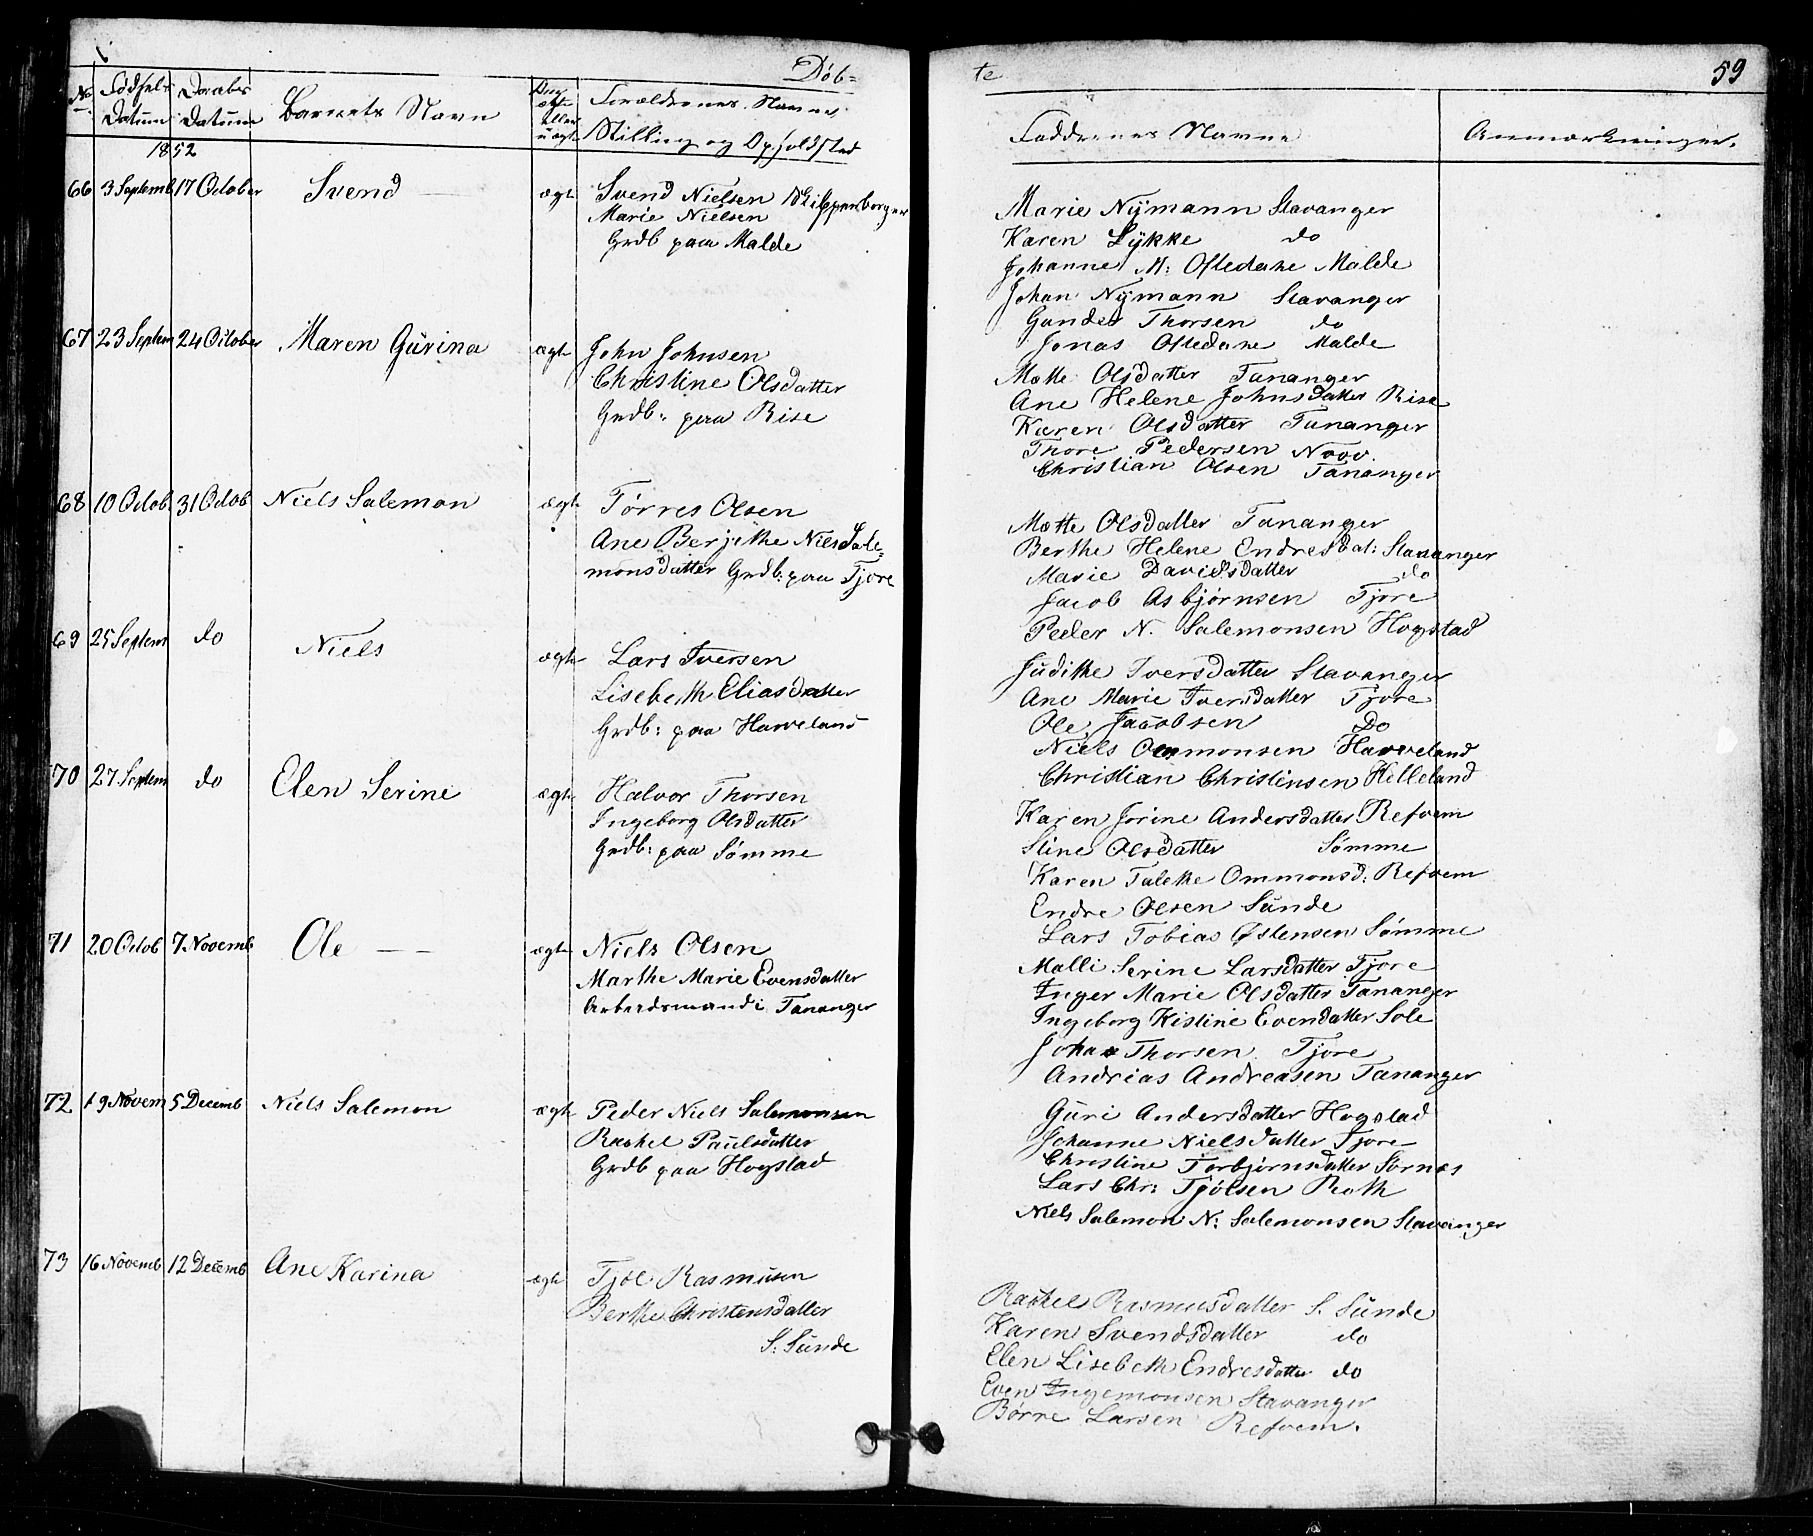 Døb=
te
59
No
Fødsels Datum
Daabs Datum
Barnets Navn
Om ægte eller uægte
Forældrenes Navne
Stilling og Opholdsted
Faddrenes Navne
Anmærkninger.
1852
66 3 Septemb 17 October Svend ægte Svend Nielsen
Marie Nielsen
Grdb paa Malde
Marie Nÿmann Stavanger
Karen Lÿkke do
Johanne M: Oftedahe Malde
Johan Nÿmann Stavanger
Gunder Thorsen do
Jonas Oftedahe Malde
67 23 Septem 24 October Maren Gurina ægte John Johnsen
Christine Olsdatter
Grdb: paa Rise
Mætte Olsdatter Tananger
Ane Helene Johnsdatter Rise
Karen Olsdatter Tananger
Thore Pedersen
Christian Olsen Tananger
68 10 Octob 31 Octob Niels Salemon ægte Tørres Olsen
Ane Berjithe Niels Sale=
monsdatter Grdb: paa Tjore
Mætte Olsdatter Tananger
Berthe Helene Endresdat: Stavanger
Marie Davidsdatter do
Jacob Asbjørnsen Tjore
Peder N. Salemonsen Hogstad
69 25 Septem do Niels ægte Lars Iversen
Lisebeth Eliasdatter
Grdb: paa Haveland
Judithe Iversdatter Stavanger
Ane Marie Iversdatter Tjore
Ole Jacobsen Do
Niels Ommonsen Haveland
Christian Christensen Helleland
70 27 Septem do Elen Serine ægte Halvor Thorsen
Ingeborg Olsdatter
Grdb: paa Sømme
Karen Jorine Andersdatter Refvem
Stine Olsdatter Sømme
Karen Talette Ommonsd: Refvem
Endre Olsen Sunde
Lars Tobias Østensen Sømme
71 20 Octob 7 Novemb Ole ægte Niels Olsen
Marthe Marie Evensdatter
Arbeidsmand i Tananger
Malli Serine Larsdatter Tjore
Inger Marie Olsdatter Tananger
Ingeborg Kistine Evendatter Sole
Johan Thorsen Tjore
Andrias Andreasen Tananger
72 19 Novem 5 Decemb Niels Salemon ægte Peder Niels Salemonsen
Rachel Paulsdatter
Grdb paa Hogstad
Guri Andersdatter Hogstad
Johanne Nielsdatter Tjore
Christine Torbjørnsdatter Sørnæs
Lars Chr: Tjølsen Roth
Niels Salemon N: Salemonsen Stavanger
73 16 Novemb 12 Decemb Ane Karina ægte Tjøl Rasmusen
Berthe Christensdatter
S: Sunde
Rachel Rasmusdatter S. Sunde
Karen Svendsdatter do
Elen Lisebeth Endresdatter do
Even Ingemonsen Stavanger
Børre Larsen Refvem.